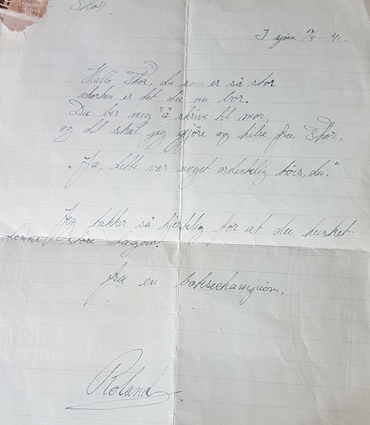 Thor.
I sjøen 12/4 - 41.
Hallo Thor, du som er så stor
hvorhen er det du nu bor.
Du ber meg å skrive til mor,
og det skal jeg gjöre og hilse fra Thor.
"Ja, dette var noget ordentlig tøis, du."
Jeg takker så hjertelig for at du husket
denne store dagen.
fra en boksechampion.
Roland